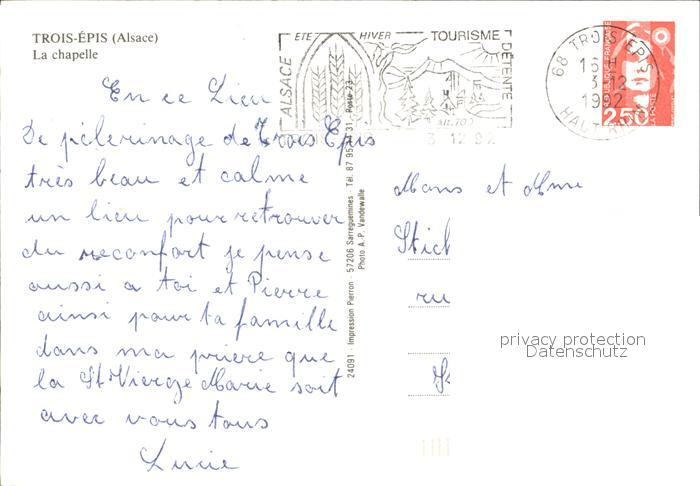 TROIS-ÉPIS (Alsace)
La chapelle
ÉTÉ HIVER TOURISME
ALSACE
DÉTENTE
ALT. 700
3 12 92
68 TROIS EPIS
15 H
3-12
1992
HAUT RHIN
RÉPUBLIQUE FRANÇAISE
2,50
LA POSTE
En ce Lieu
De pélerinage de Trois Epis
très beau et calme
un lieu pour retrouver
du reconfort je pense
aussi a toi et Pierre
ainsi pour ta famille
dans ma priere que
la St Vierge Marie soit
avec vous tous
Lucie
24091 - Impression Pierron - 57206 Sarreguemines - Tél. 87 95 14 31 - Poste 23
Photo A. P. Vandewalle
Mons et Mme
Stich
ru
privacy protection
Datenschutz